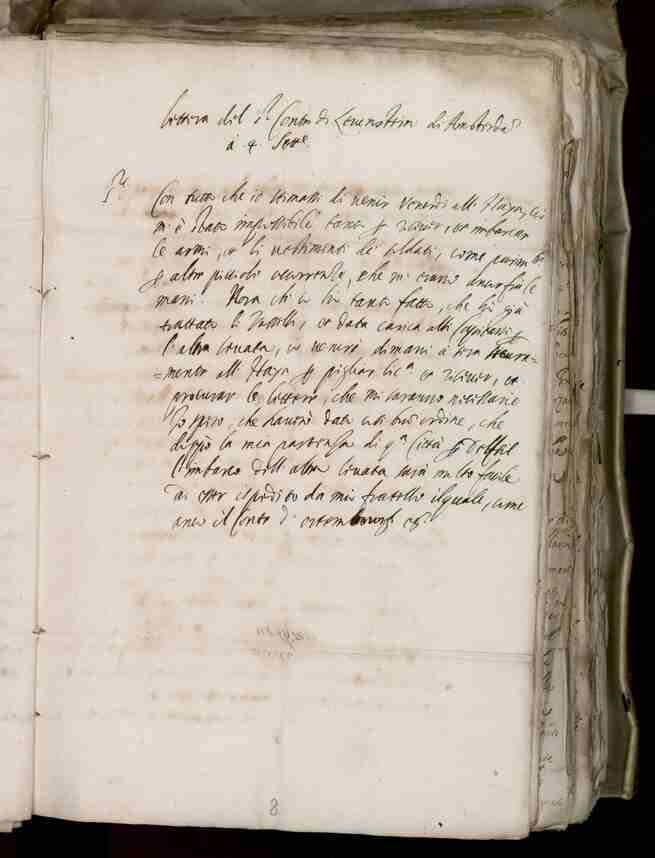 lettera del s.r Conte di Levenstein di Amsterda
à 4. Sett.e
Con tutto che io stimassi di venir venerdi all' Haya,
m'è stato impossibile tanto p
le armi, et li vestimenti de soldati, come parim.te
p altre piccole occorrenze, che mi erano
mani. Hora chi io hò tanto fatto, che hò già
trattato li Vasselli, et data carica alli Capitani p
l'altra levata, io venirò dimani à sera
mente all' Haya p pigliar lic.a et
procurar le lettere, che mi saranno necessarie
Io spero, che havendo dato così buon ordine, che
doppò la mia partenza di q.a Città p
l'imbarco dell' altra levata sarà molto facile
ad esser espedito da mio fratello il quale, come
anco il Conte d'
8